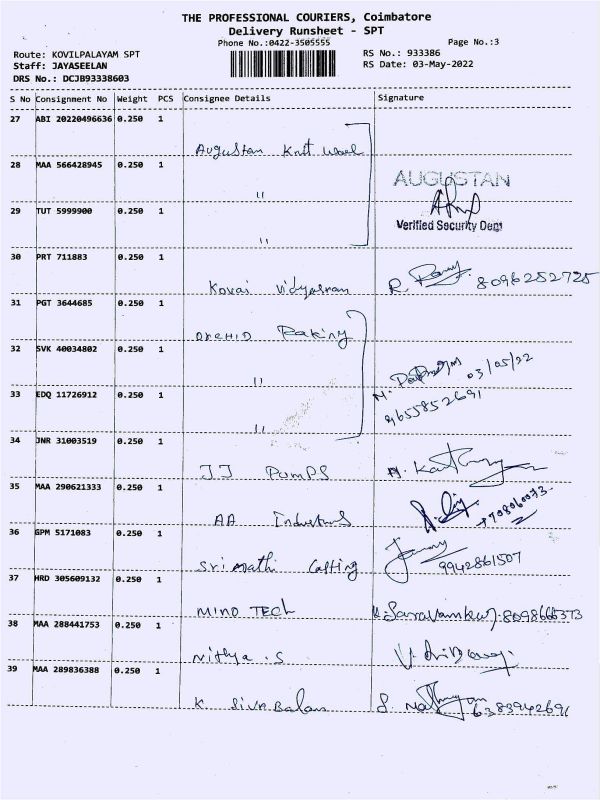 THE PROFESSIONAL COURIERS, Coimbatore
Delivery Runsheet - SPT
Phone No.:0422-3505555
Page No.:3
Route: KOVILPALAYAM SPT
RS No.: 933386
Staff: JAYASEELAN
RS Date: 03-May-2022
DRS No.: DCJB93338603
S No Consignment No Weight PCS Consignee Details Signature
27 ABI 20220496636 0.250 1
Augustan Knit
28 MAA 566428945 0.250 1
"
AUGUSTAN
29 TUT 5999900 0.250 1
Verified Security Dept
"
30 PRT 711883 0.250 1
Kovai Vidyasram R. 8096252725
31 PGT 3644685 0.250 1
ORCHID
32 SVK 40034802 0.250 1
" 03/05/22
33 EDQ 11726912 0.250 1
" 9655852691
34 JNR 31003519 0.250 1
JJ PUMPS
35 MAA 290621333 0.250 1
AA Industries
36 GPM 5171083 0.250 1
Sri Mathi Casting 9942861507
37 HRD 305609132 0.250 1
MIND TECH
38 MAA 288441753 0.250 1
Nithya .S
39 MAA 289836388 0.250 1
K SIVA Balan 6383942691